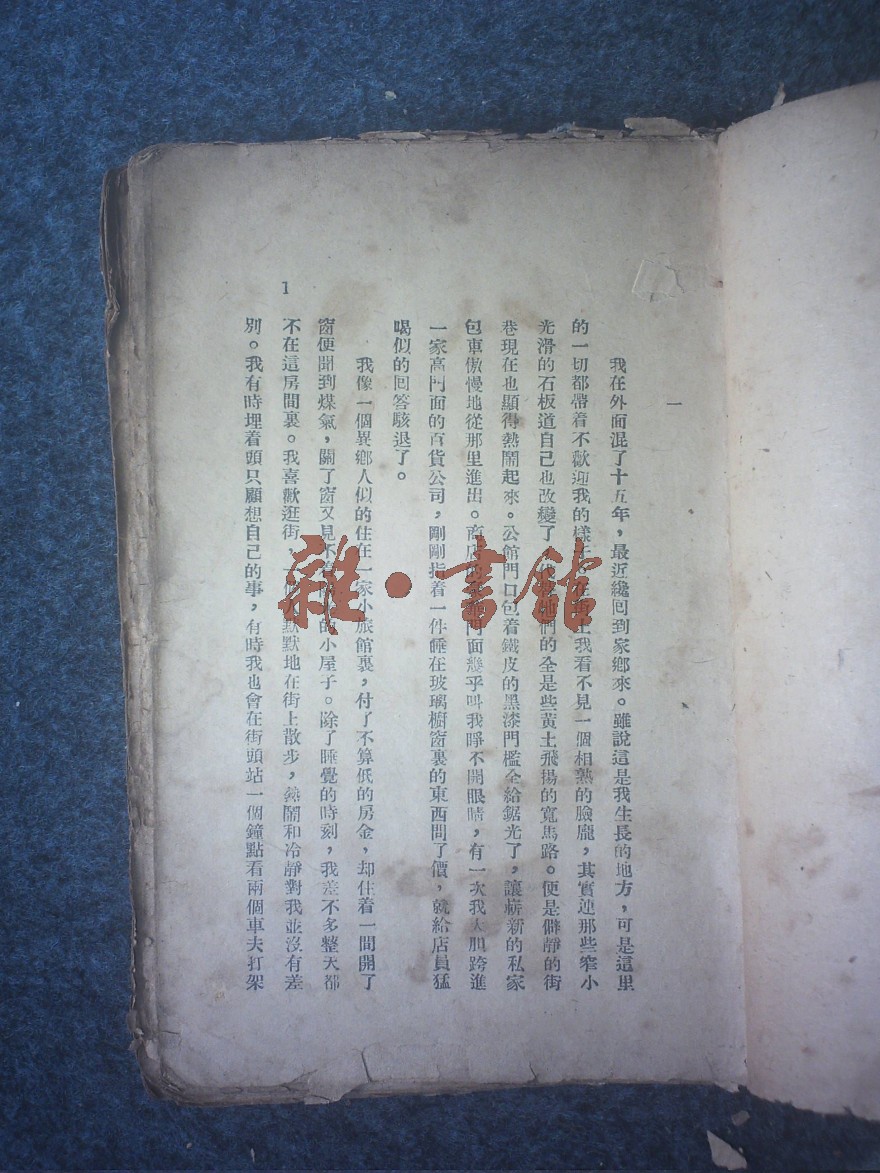 一
我在外面混了十五年，最近纔囘到家鄉來。雖說這是我生長的地方，可是這里
的一切都帶着不歡迎我的樣子。在街上我看不見一個相熟的臉龐，其實連那些窄小
光滑的石板道自己也改變了，代替它們的全是些黃土飛揚的寬馬路。便是僻靜的街
巷現在也顯得熱鬧起來。公館門口包着鐵皮的黑漆門檻全給鋸光了，讓嶄新的私家
包車傲慢地從那里進出。商店的門面幾乎叫我睜不開眼睛，有一次我大胆跨進
一家高門面的百貨公司，剛剛指着一件睡在玻璃橱窗裏的東西問了價，就給店員猛
喝似的囘答駭退了。
我像一個異鄉人似的住在一家小旅館裏，付了不算低的房金，却住着一間開了
窗便聞到煤氣，關了窗又見不着的小屋子。除了睡覺的時刻，我差不多整天都
不在這房間裏。我喜歡逛街，默默地在街上散步，熱鬧和冷靜對我並沒有差
別。我有時埋着頭只顧想自己的事，有時我也會在街頭站一個鐘點看兩個車夫打架
1
雜·書館